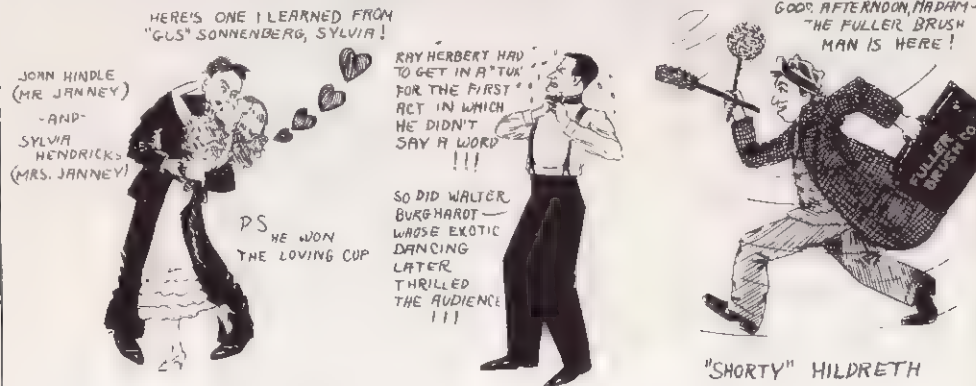 HERE'S ONE I LEARNED FROM
"GUS" SONNENBERG, SYLVIA!
JOHN HINDLE
(MR JANNEY)
-AND-
SYLVIA
HENDRICKS
(MRS. JANNEY)
PS
HE WON
THE LOVING CUP
RAY HERBERT HAD
TO GET IN A "TUX"
FOR THE FIRST
ACT IN WHICH
HE DIDN'T
SAY A WORD
!!!
SO DID WALTER
BURGHARDT—
WHOSE EXOTIC
DANCING
LATER
THRILLED
THE AUDIENCE
!!!
GOOD AFTERNOON, MADAM—
THE FULLER BRUSH
MAN IS HERE!
FULLER
BRUSH CO
"SHORTY" HILDRETH